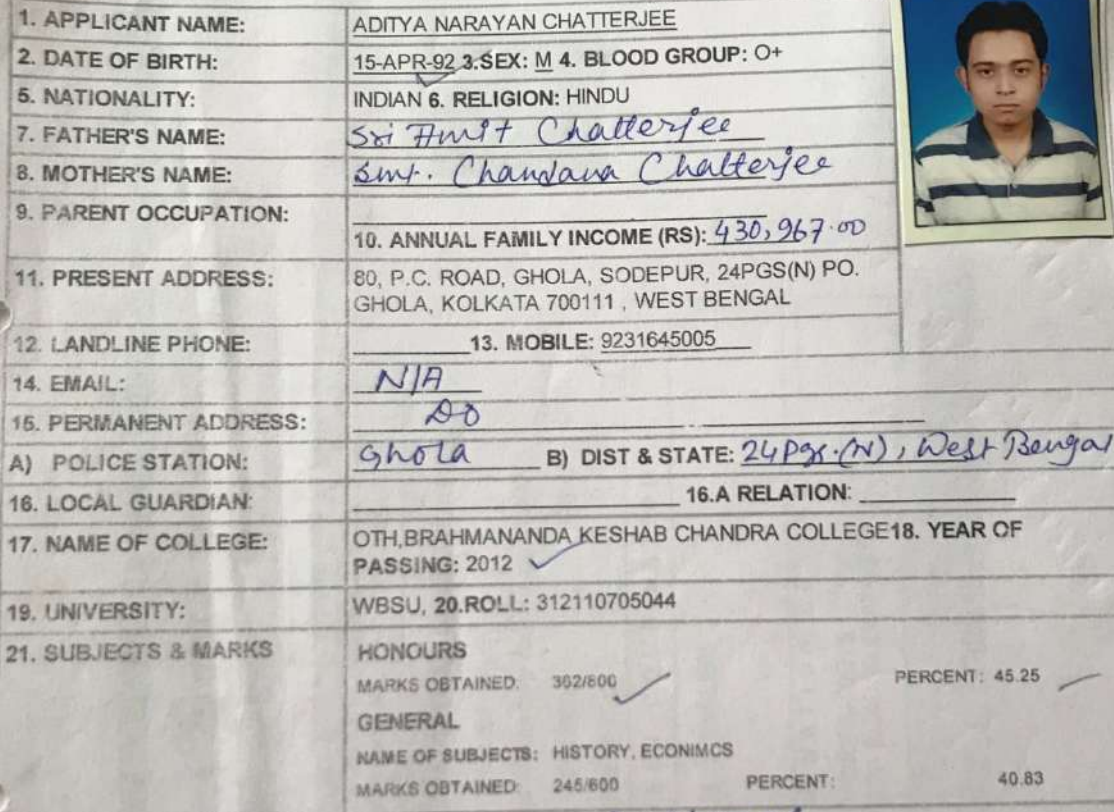 1. APPLICANT NAME: ADITYA NARAYAN CHATTERJEE
2. DATE OF BIRTH: 15-APR-92 3.SEX: M 4. BLOOD GROUP: O+
5. NATIONALITY: INDIAN 6. RELIGION: HINDU
7. FATHER'S NAME: Sri Amit Chatterjee
8. MOTHER'S NAME: Smt. Chandana Chatterjee
9. PARENT OCCUPATION:
10. ANNUAL FAMILY INCOME (RS): 430,967.00
11. PRESENT ADDRESS: 80, P.C. ROAD, GHOLA, SODEPUR, 24PGS(N) PO.
GHOLA, KOLKATA 700111 , WEST BENGAL
12. LANDLINE PHONE: 13. MOBILE: 9231645005
14. EMAIL: N/A
15. PERMANENT ADDRESS: DO
A) POLICE STATION: Ghola B) DIST & STATE: 24 Pgs.(N), West Bengal
16. LOCAL GUARDIAN: 16.A RELATION:
17. NAME OF COLLEGE: OTH,BRAHMANANDA KESHAB CHANDRA COLLEGE18. YEAR OF
PASSING: 2012
19. UNIVERSITY: WBSU, 20.ROLL: 312110705044
21. SUBJECTS & MARKS HONOURS
MARKS OBTAINED: 362/800 PERCENT: 45.25
GENERAL
NAME OF SUBJECTS: HISTORY, ECONIMCS
MARKS OBTAINED: 245/600 PERCENT: 40.83